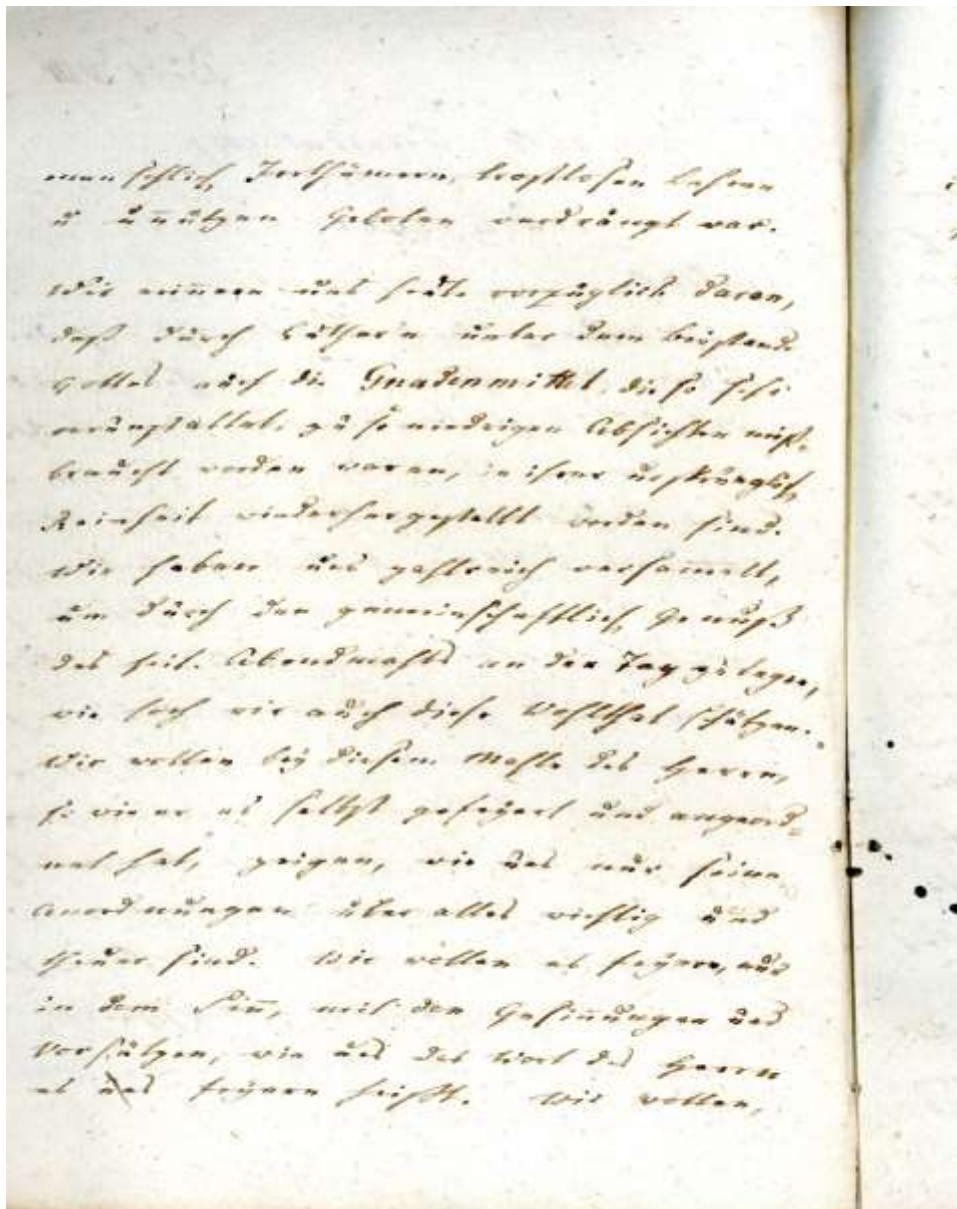 menschlich, Irrthümern, trostlosen Lehren
u unnützen Geboten verdrängt war.
Wir erinnern uns heute vorzüglich daran,
daß durch Luthern unter dem Beystande
Gottes auch die Gnadenmittel, die so sehr
verunstaltet, zu so niedrigen Absichten miß-
braucht worden waren, in ihrer ursprünglich,
Reinheit wiederhergestellt worden sind.
Wir haben uns zahlreich versammelt,
um durch den gemeinschaftlich, Genuß
des heil. Abendmahls an den Tag zu legen,
wie hoch wir auch diese Wohlthat schätzen.
Wir wollen bey diesem Mahle des Herrn,
so wie er es selbst gefeyert und angeord-
net hat, zeigen, wie uns nur seine
Anordnungen über alles wichtig und
theuer sind. Wir wollen es feyern, nur
in dem Sinn, mit den Gesinnungen und
Vorsätzen, wie uns das Wort des Herrn
es uns feyern heißt. Wir wollen,